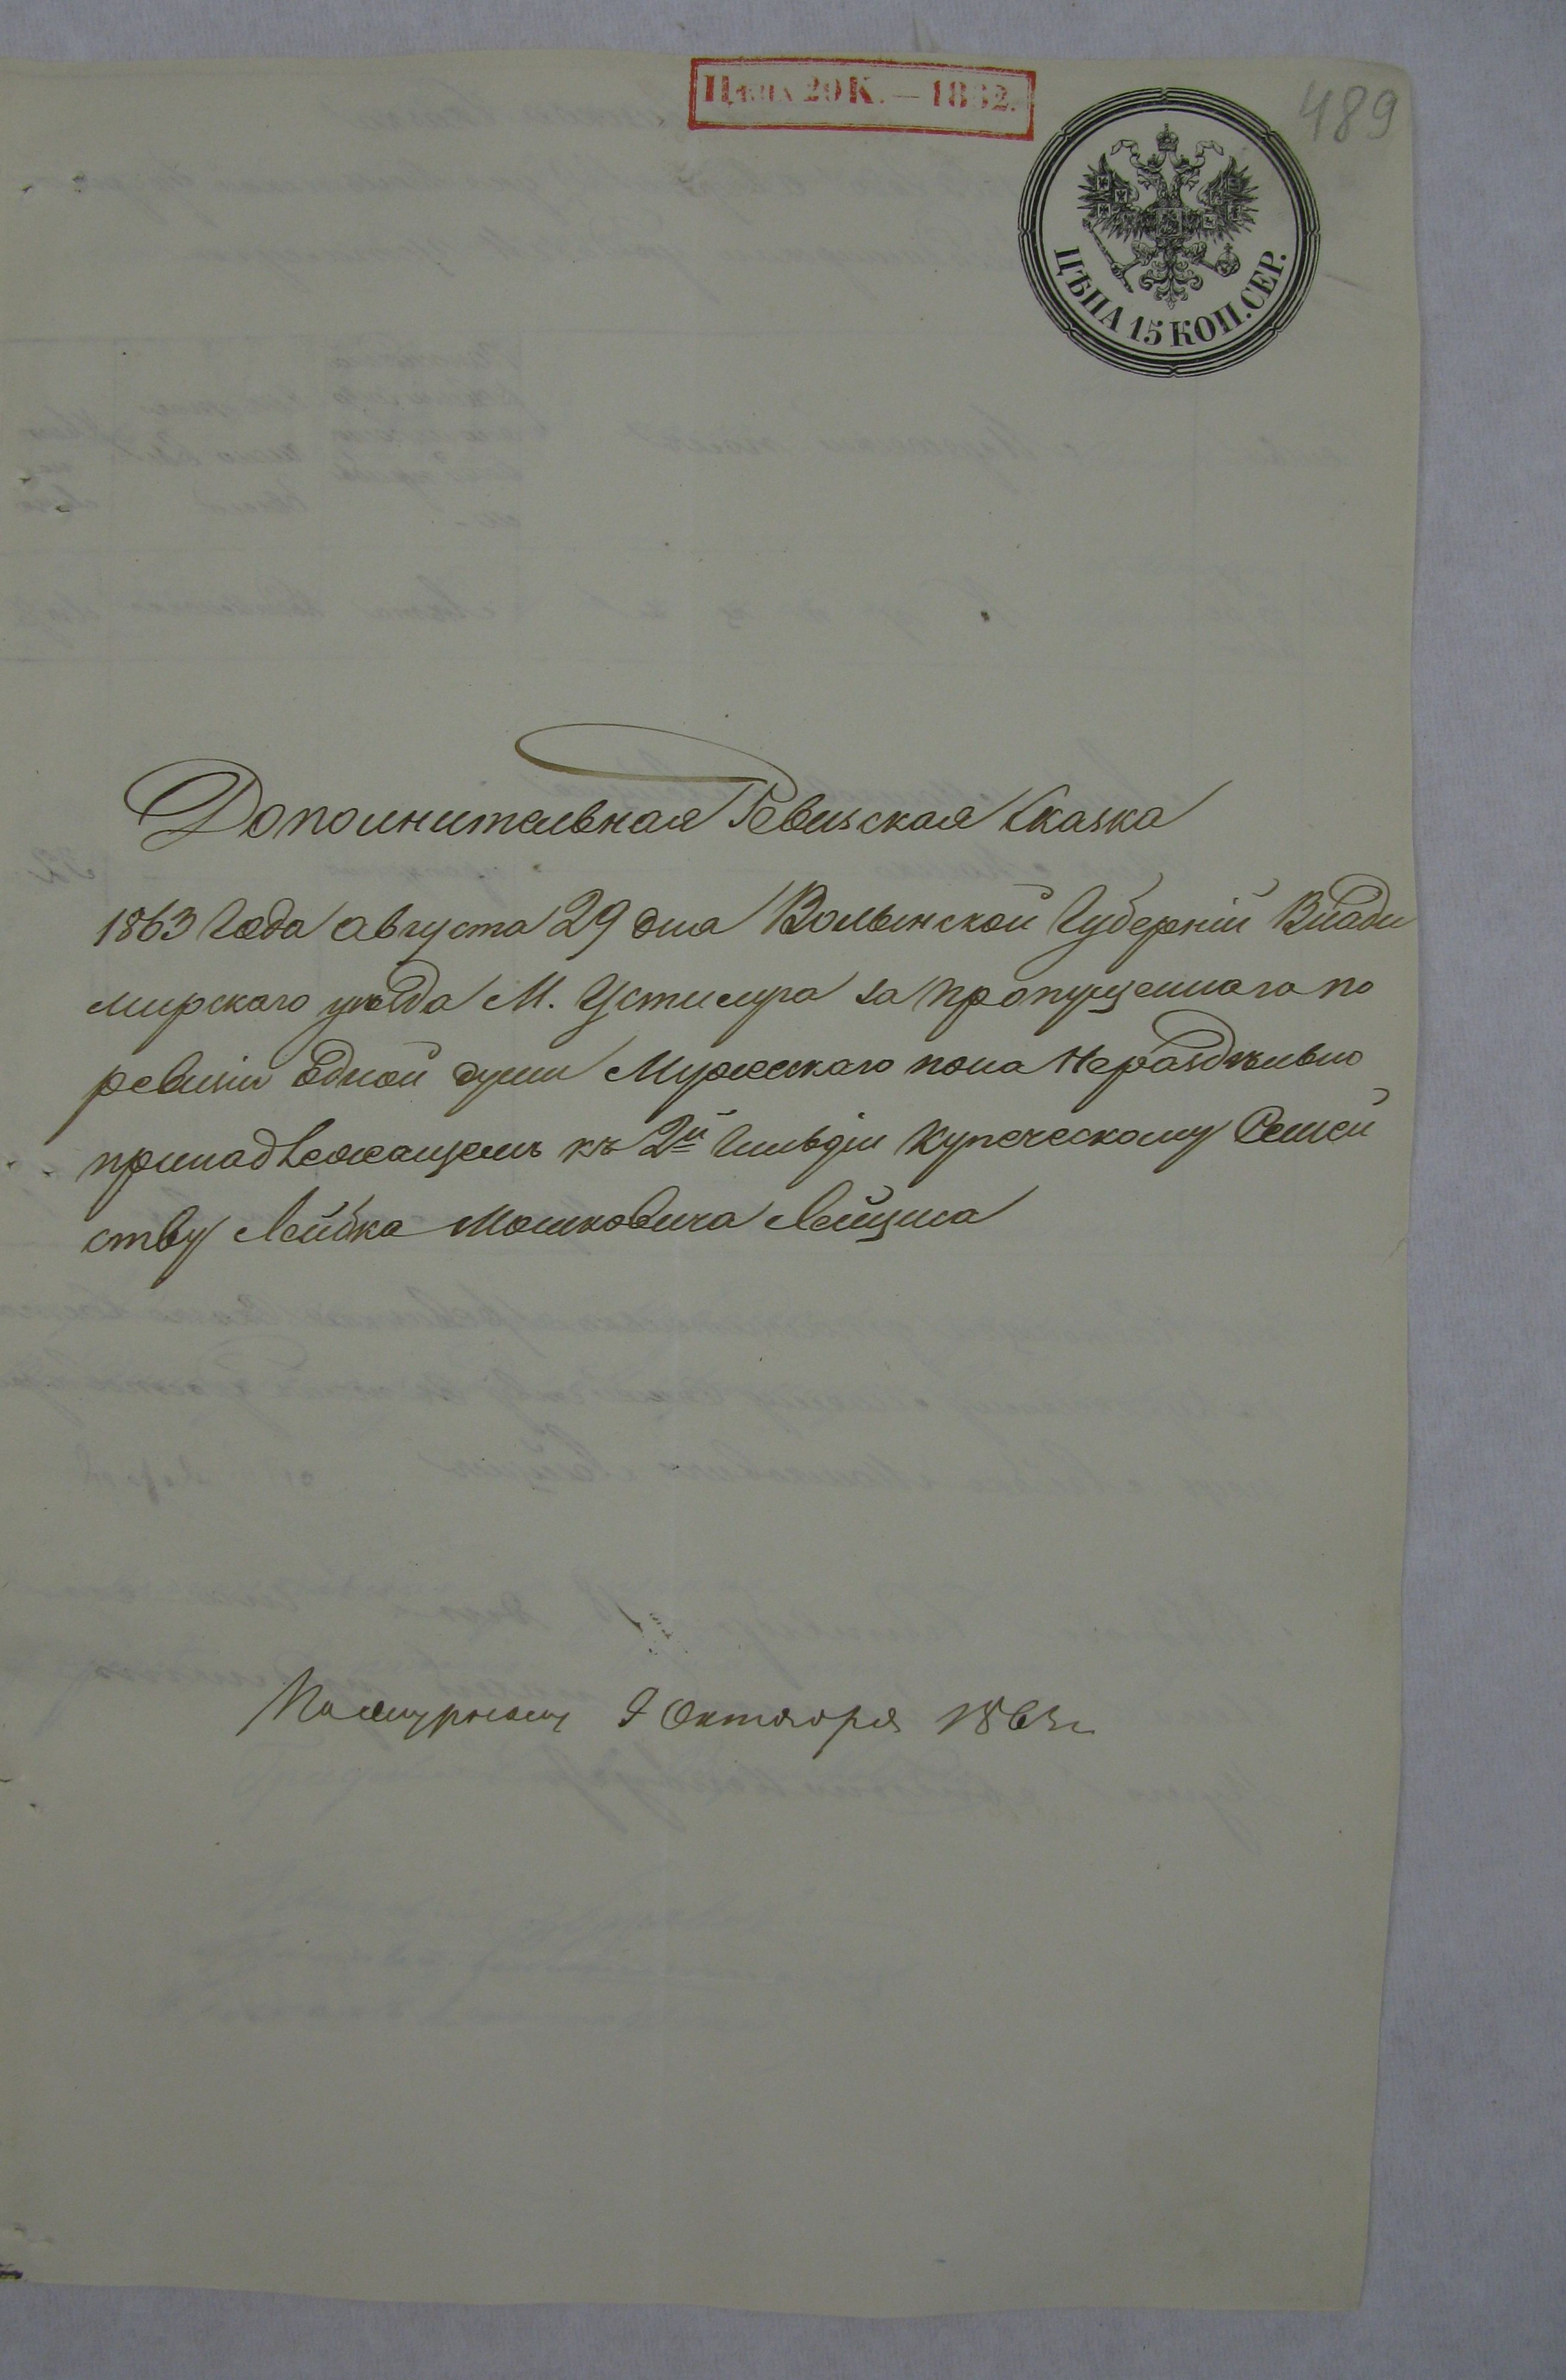 Цѣна 20 К. — 1862.
489
ЦѢНА 15 КОП. СЕР.
Дополнительная Ревизская Сказка
1863 Года августа 29 дня Волынской Губернiи Влади
мирскаго уѣзда М. Устилуга за пропущеннаго по
ревизiи Едной души Мужескаго пола Нераздѣльно
принадлежащемъ къ 2й Гильдiи Купеческому Семей
ству Лейбка Мошковича Лейциса
9 Октября 1863 г